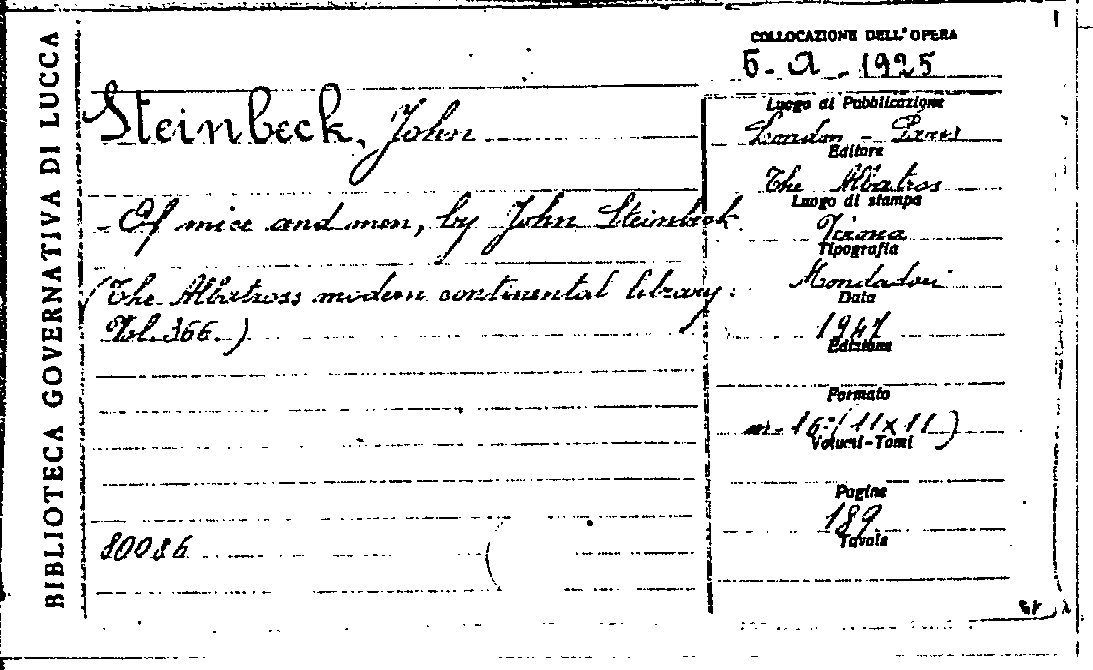 BIBLIOTECA GOVERNATIVA DI LUCCA
COLLOCAZIONE DELL'OPERA
5-a-1925
Steinbeck, John
- Of mice and men, by John Steinbeck
(The Albatross modern continental library:
Vol. 366.)
80086
Luogo di Pubblicazione
London - Paris
Editore
The Albatros
Luogo di stampa
Verona
Tipografia
Mondadori
Data
1947
Edizione
Formato
in-16°(11x11)
Volumi-Tomi
Pagine
189
Tavole